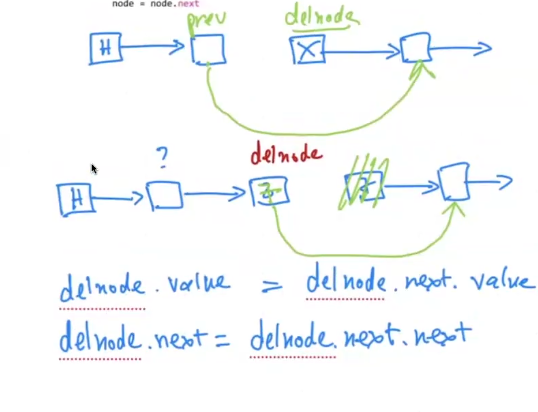 node = node.next
prev delnode
H X
?
delnode
H 3
delnode.value = delnode.next.value
delnode.next = delnode.next.next